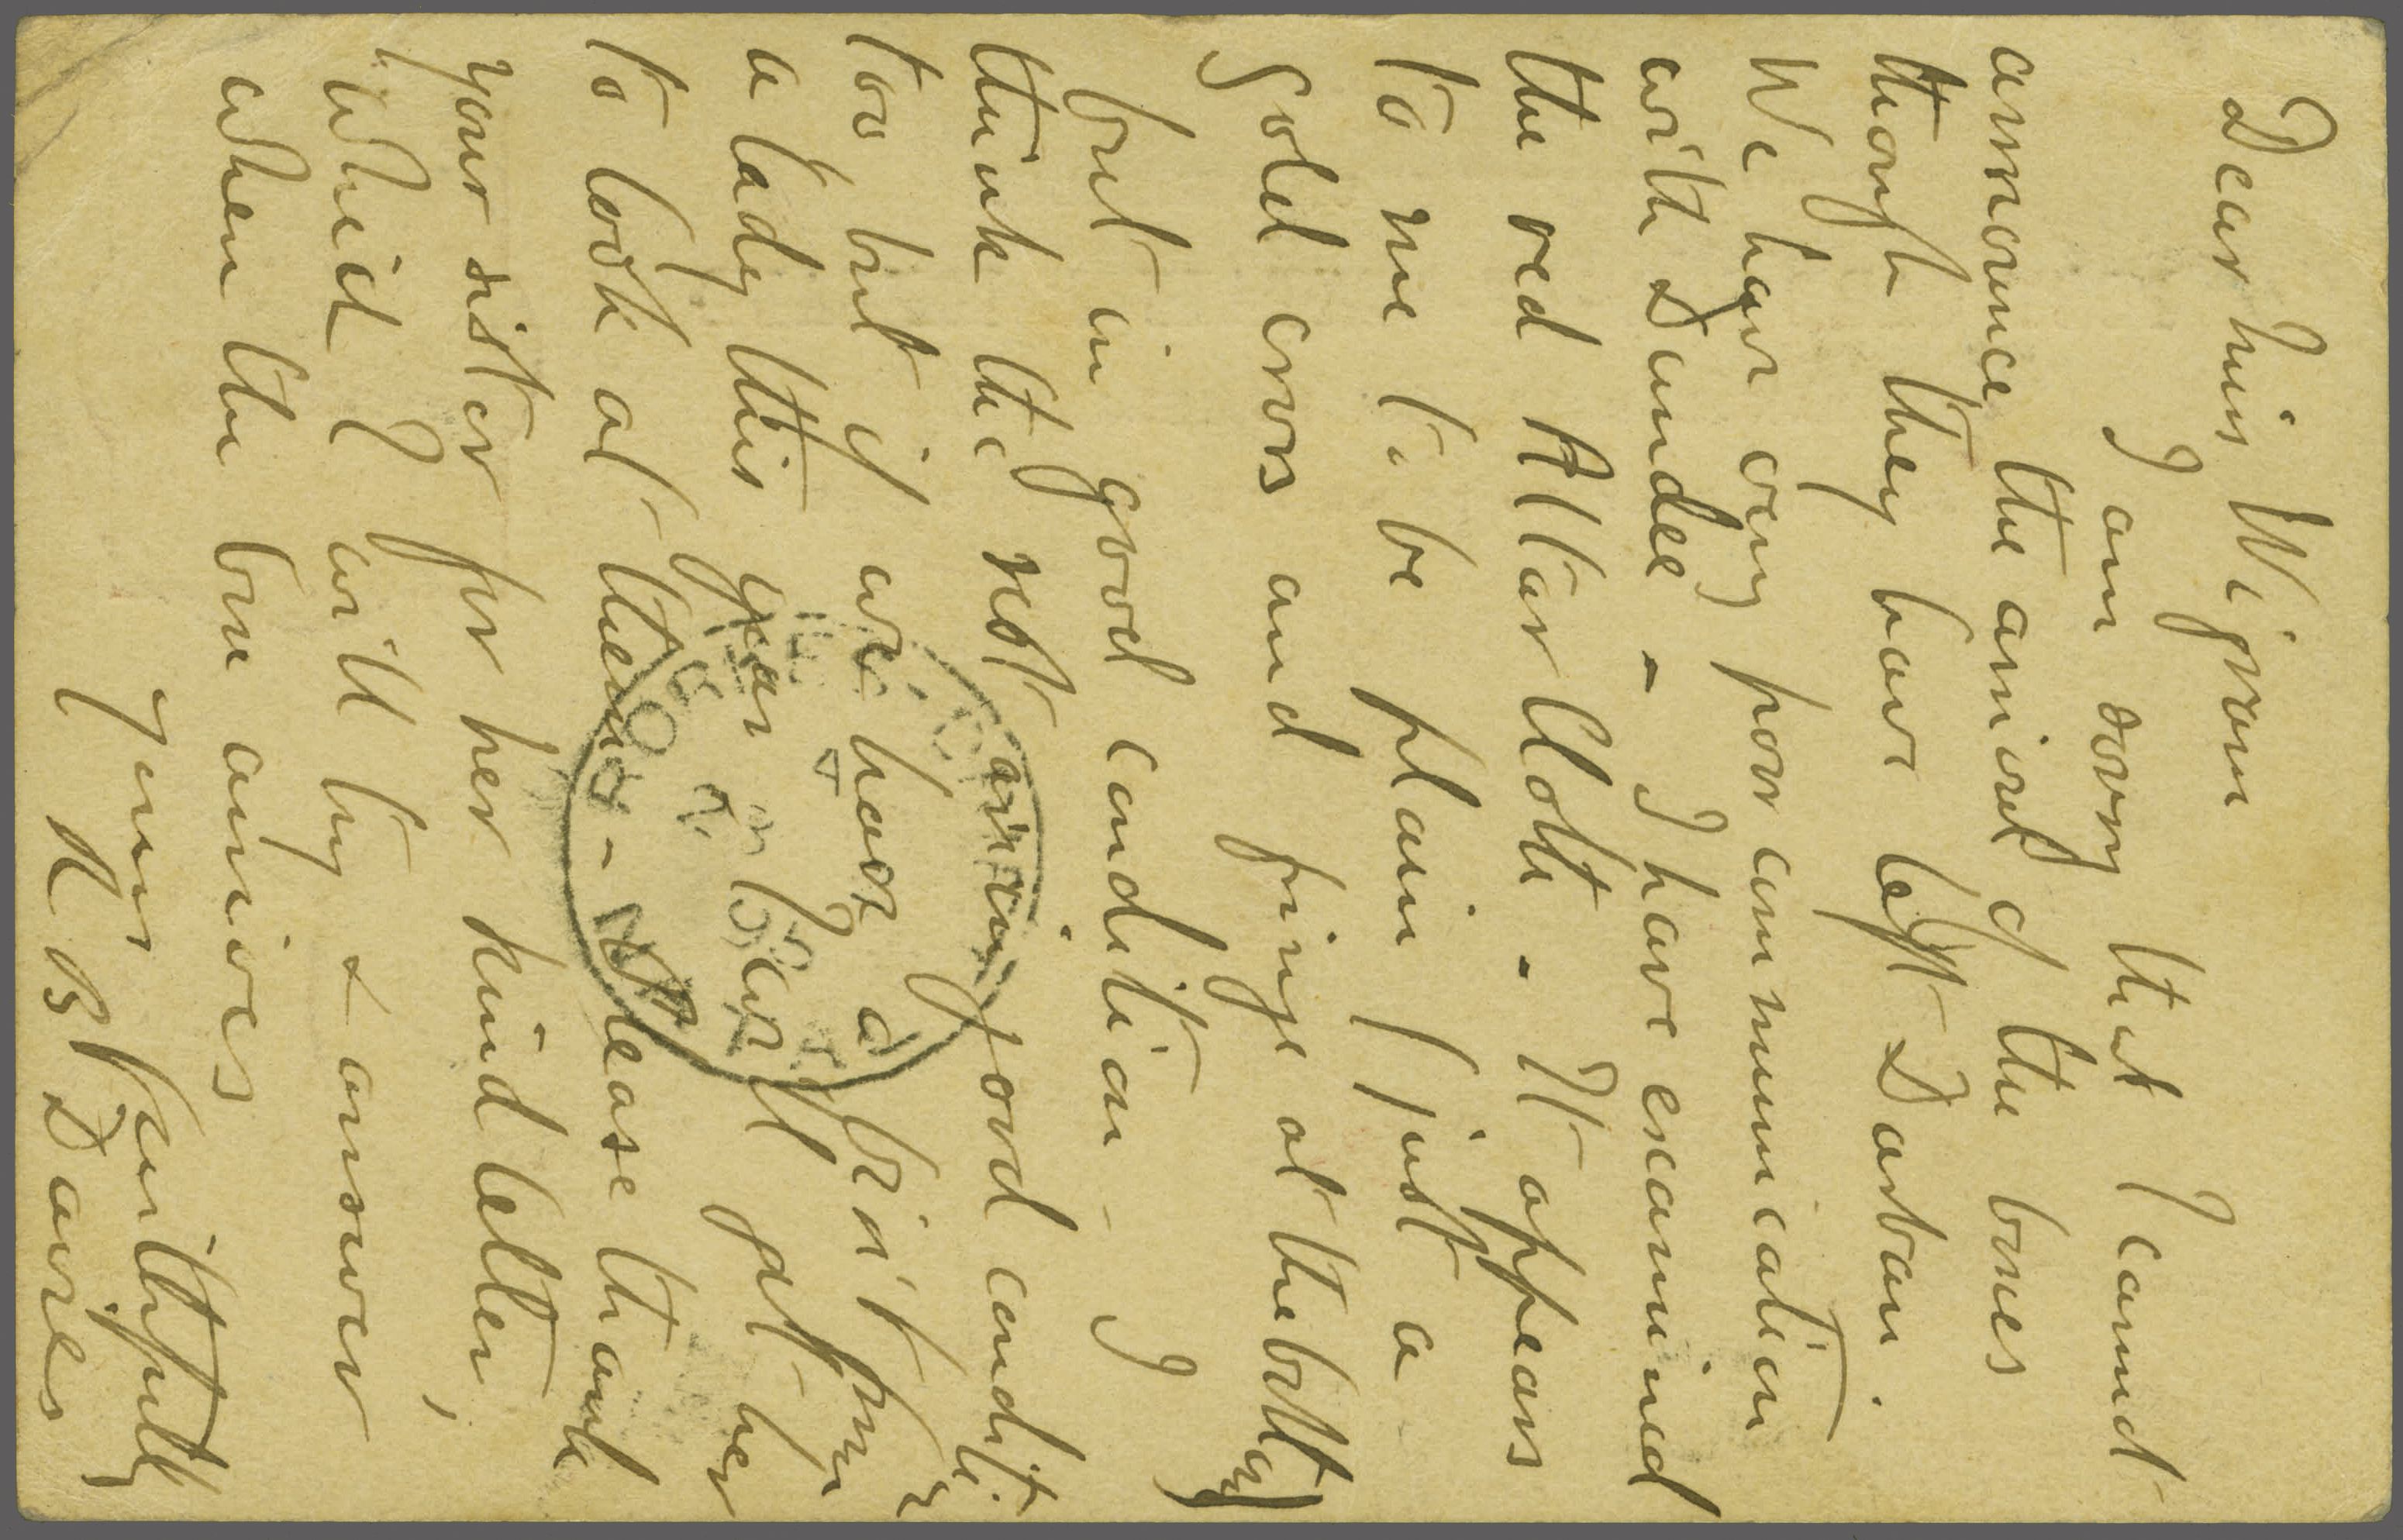 Dear Miss Wigram
I am sorry that I cannot
announce the arrival of the boxes
though they have left Durban.
We have very poor communication
with Dundee - I have examined
the red Altar Cloth - It appears
to me to be plain (just a
gold cross and fringe at the bottom)
but in good condition - I
think the rest are in good conditi
too but if we have a visit from
a lady this year I will get her
to look at them - Please thank
your sister for her kind letter,
which I will try & answer
when the box arrives
Yours faithfully
R B Davies